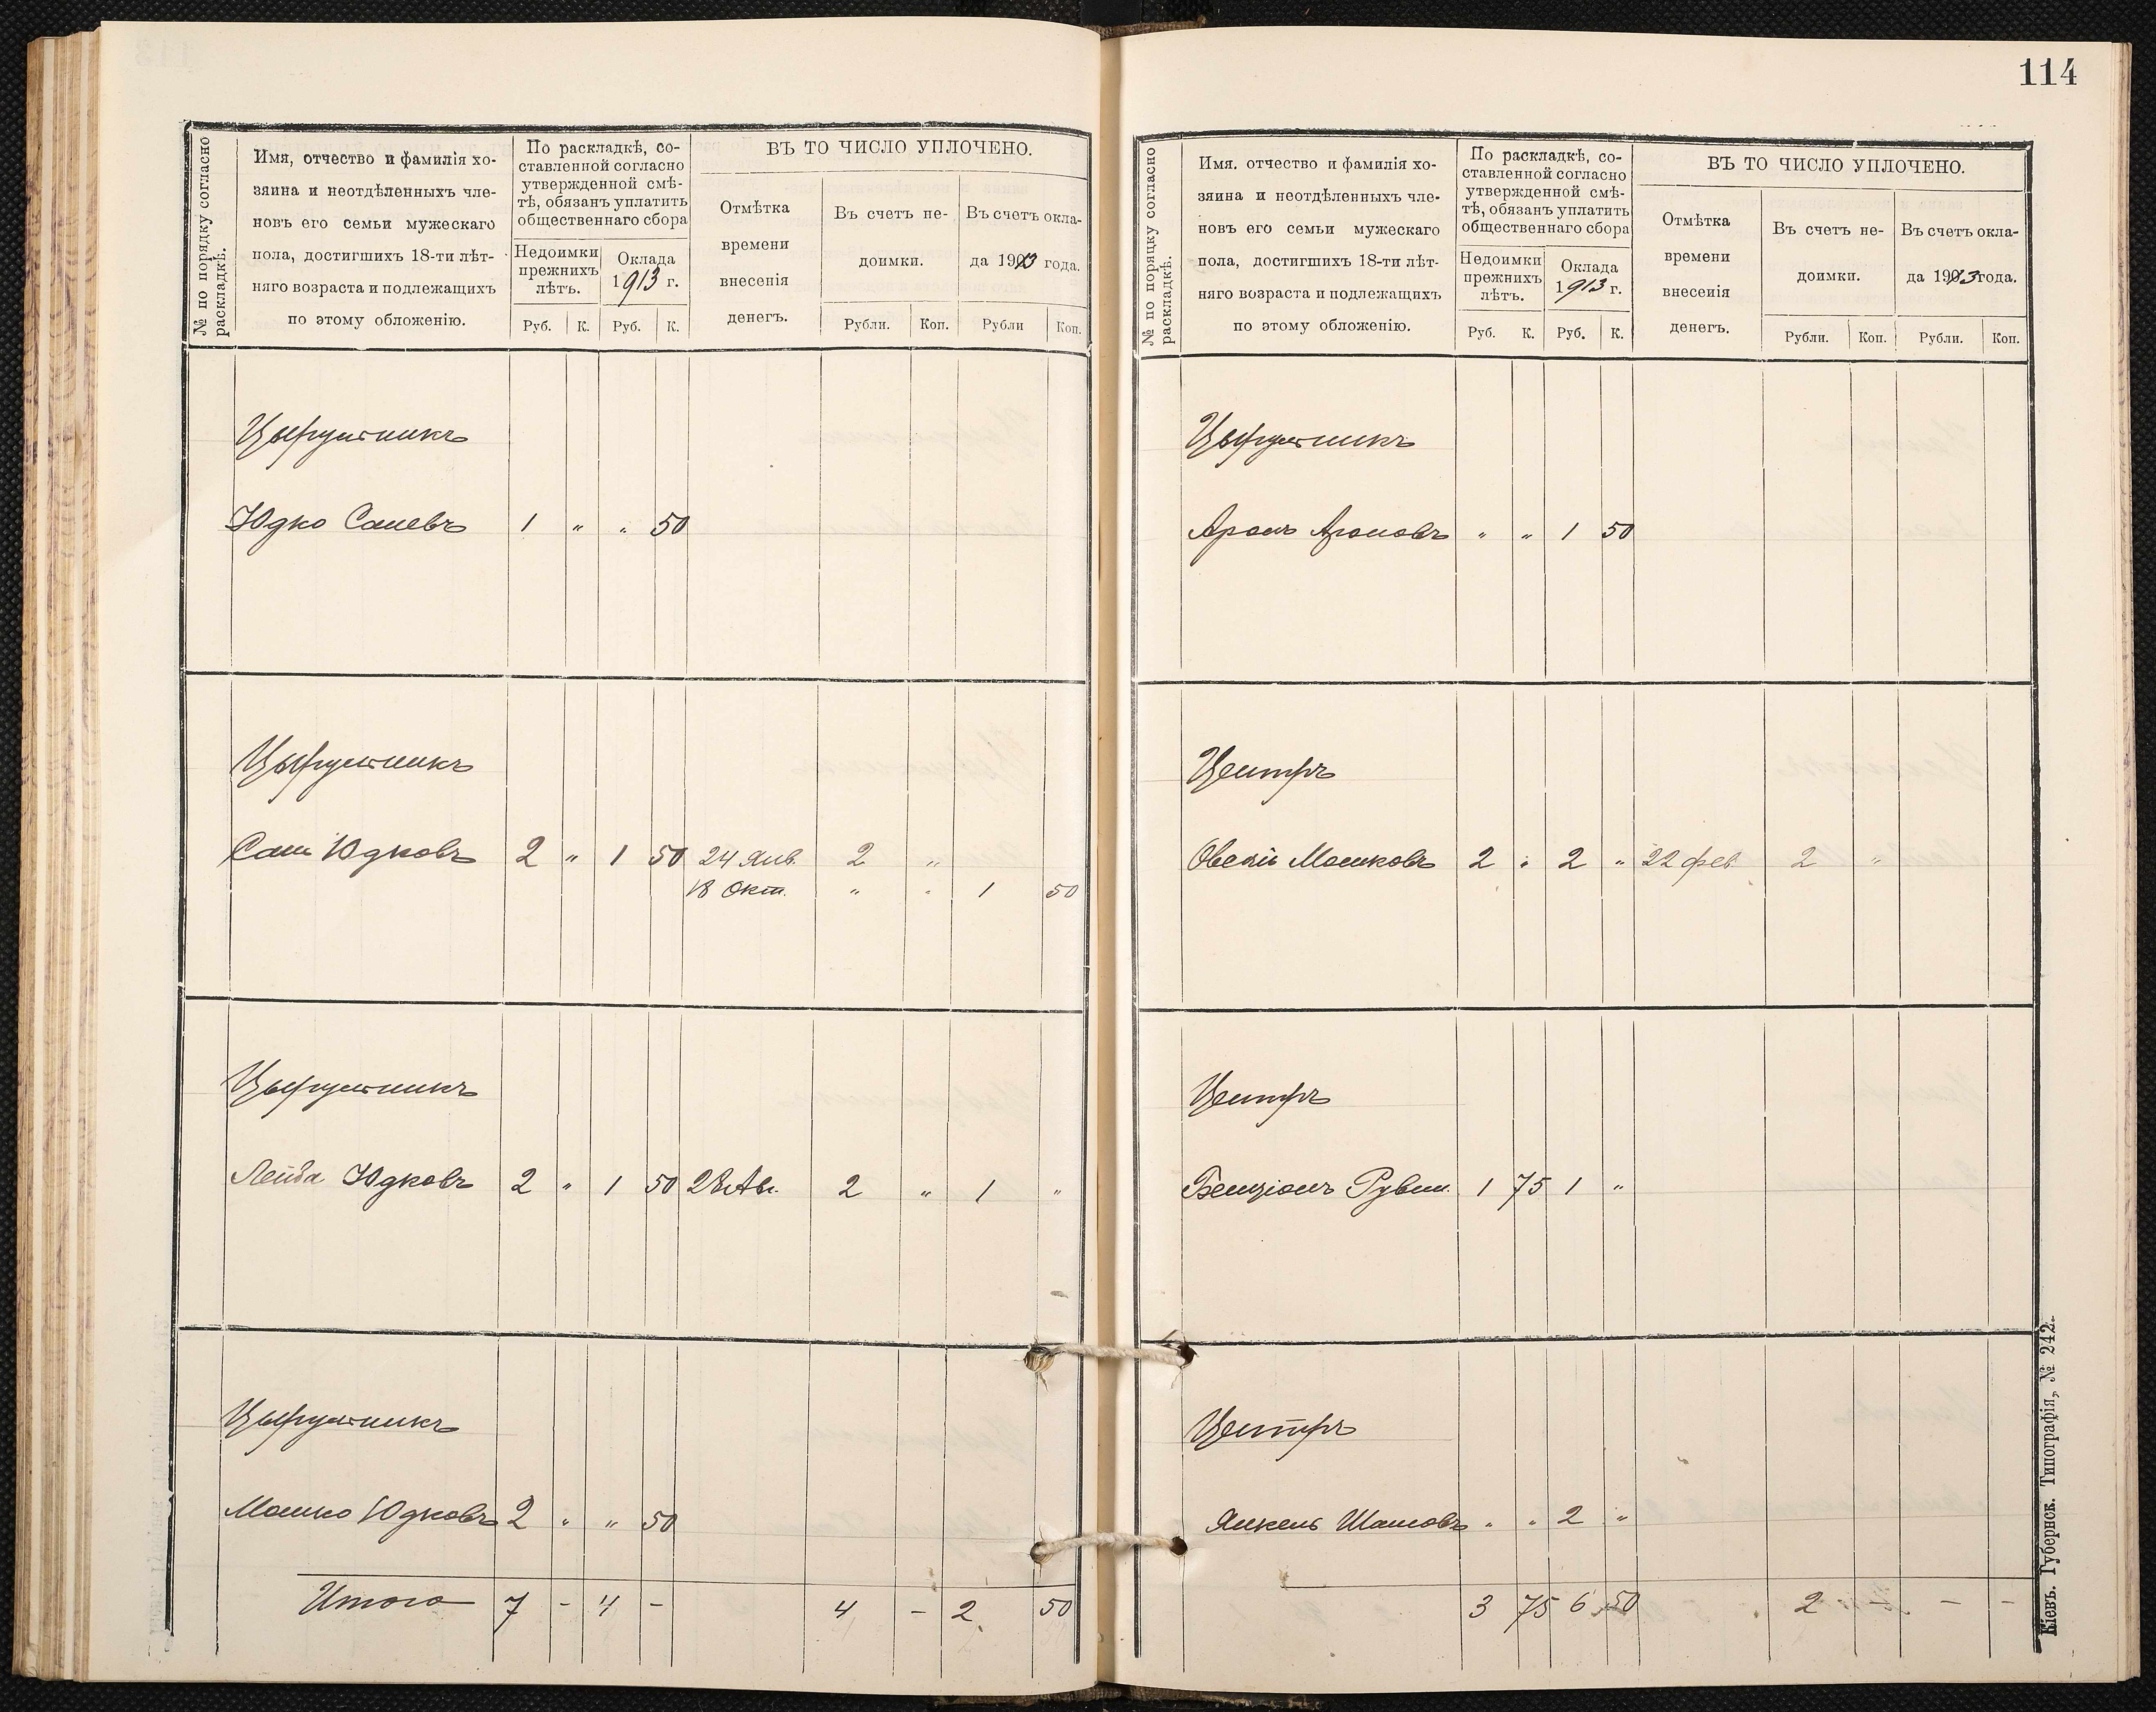 114
№ по порядку согласно раскладкѣ.
Имя, отчество и фамилія хо-
зяина и неотдѣленныхъ чле-
новъ его семьи мужескаго
пола, достигшихъ 18-ти лѣт-
няго возраста и подлежащихъ
по этому обложенію.
По раскладкѣ, со-
ставленной согласно
утвержденной смѣ-
тѣ, обязанъ уплатить
общественнаго сбора
Недоимки
прежнихъ
лѣтъ.
Оклада
1913 г.
Руб. К. Руб. К.
ВЪ ТО ЧИСЛО УПЛОЧЕНО.
Отмѣтка
времени
внесенія
денегъ.
Въ счетъ не-
доимки.
Въ счетъ окла-
да 1913 года.
Рубли. Коп. Рубли Коп.
Цырульникъ
Юдко Саневъ 1 " " 50
Цырульникъ
Сани Юдковъ 2 " 1 50 24 Янв. 2 "
18 Окт. " " 1 50
Цырульникъ
Лейба Юдковъ 2 " 1 50 28 Ав. 2 " 1 "
Цырульникъ
Мошко Юдковъ 2 " " 50
Итого 7 - 4 - 4 - 2 50
№ по порядку согласно раскладкѣ.
Имя. отчество и фамилія хо-
зяина и неотдѣленныхъ чле-
новъ его семьи мужескаго
пола, достигшихъ 18-ти лѣт-
няго возраста и подлежащихъ
по этому обложенію.
По раскладкѣ, со-
ставленной согласно
утвержденной смѣ-
тѣ, обязанъ уплатить
общественнаго сбора
Недоимки
прежнихъ
лѣтъ.
Оклада
1913 г.
Руб. К. Руб. К.
ВЪ ТО ЧИСЛО УПЛОЧЕНО.
Отмѣтка
времени
внесенія
денегъ.
Въ счетъ не-
доимки.
Въ счетъ окла-
да 1913 года.
Рубли. Коп. Рубли. Коп.
Цырульникъ
Аронъ Ароновъ " " 1 50
Центръ
Овсій Мошковъ 2 " 2 " 22 фев. 2 "
Центръ
Бенціонъ Рувин. 1 75 1 "
Центръ
Янкель Шамовъ " " 2 "
3 75 6 50 2 - - -
Кіевъ. Губернск. Типографія, № 242.